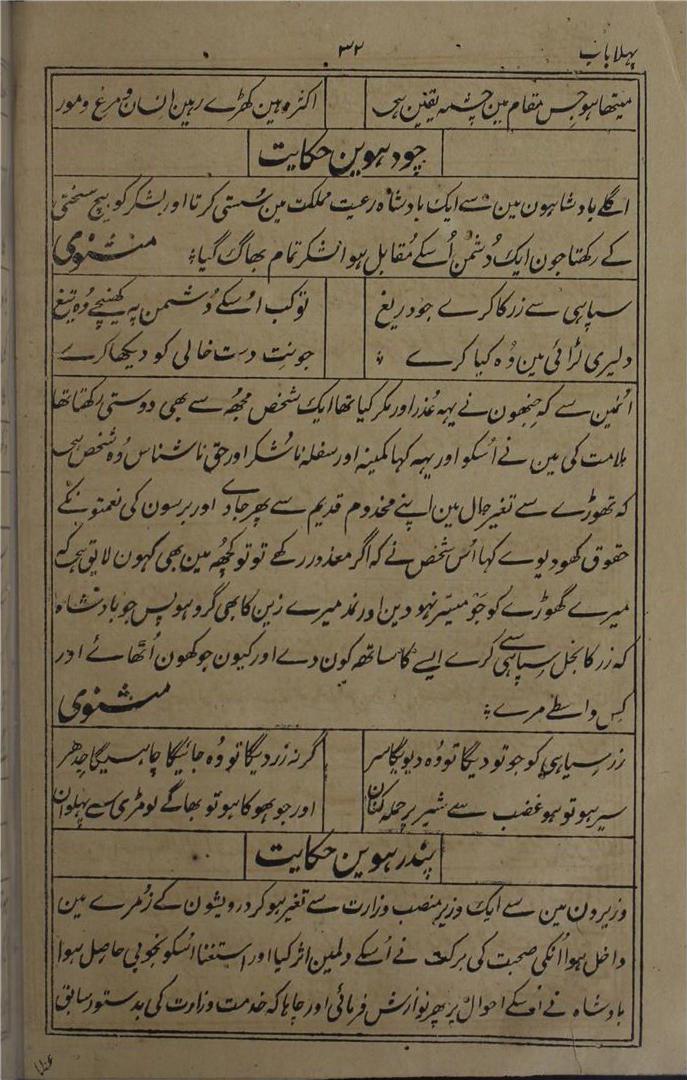 پہلا باب ۳۲
میٹھا ہو جس مقام مین چشمہ یقین ہے اکثر وہین کھڑے رہین انسان و مرغ و مور
چودہوین حکایت
اگلے بادشاہون مین سے ایک بادشاہ رعیت مملکت مین سُستی کرتا اور لشکر کو بیچ سختی
کے رکھتا جون ایک دُشمن اُسکے مُقابل ہوا لشکر تمام بھاگ گیا؛ مثنوی
سپاہی سے زر کا کرے جو دریغ تو کب اُسکے دُشمن پہ کھینچے وُہ تیغ
دلیری لڑائی مین وُہ کیا کرے جو نِت دست خالی کو دیکھا کرے
اُنمین سے کہ جنھون نے یہہ عُذر اور مکر کیا تھا ایک شخص مجھ سے بھی دوستی رکھتا تھا
ملامت کی مین نے اُسکو اور یہہ کہا کمینہ اور سفلہ ناشُکر اور حق ناشناس وُہ شخص ہے
کہ تھوڑے سے تغیر حال مین اپنے مخدوم قدیم سے پھر جاوے اور برسون کی نعمتونکے
حقوق کھو دیوے کہا اُس شخص نے کہ اگر معذور رکھے تو تو کُچھ مین بھی کہون لایق ہے کہ
میرے گھوڑے کو جَو میسّر نہو دین اور نمد میرے زین کا بھی گرو ہو پس جو بادشاہ
کہ زر کا بخل سپاہی سے کرے ایسے کا ساتھ کون دے اور کیون جوکھون اُٹھائے اور
کس واسطے مرے؛ مثنوی
زر سپاہی کو جو تو دیگا تو وُہ دیویگا سر گر نہ زر دیگا تو وُہ جائیگا چاہیگا جدھر
سیر ہو تو ہو غضب سے شیر پر حملہ کُنان اور جو بھوکا ہو تو بھاگے لومڑی سے پہلوان
پندرہوین حکایت
وزیرون مین سے ایک وزیر منصب وزارت سے تغیر ہو کر درویشون کے زُمرے مین
داخل ہوا اُنکی صحبت کی برکت نے اُسکے دلمین اثر کیا اور استغنا اُسکو بخوبی حاصل ہوا
بادشاہ نے اُسکے احوال پر پھر نوازش فرمائی اور چاہا کہ خدمت وزارت کی بدستور سابق